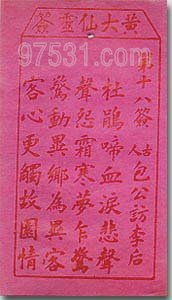 黃大仙靈簽
97531.com
第十八簽 古人 包公訪李后
杜鵑啼血淚悲聲
聲怨霜寒夢乍驚
驚動異鄉為異客
客心更觸故園情